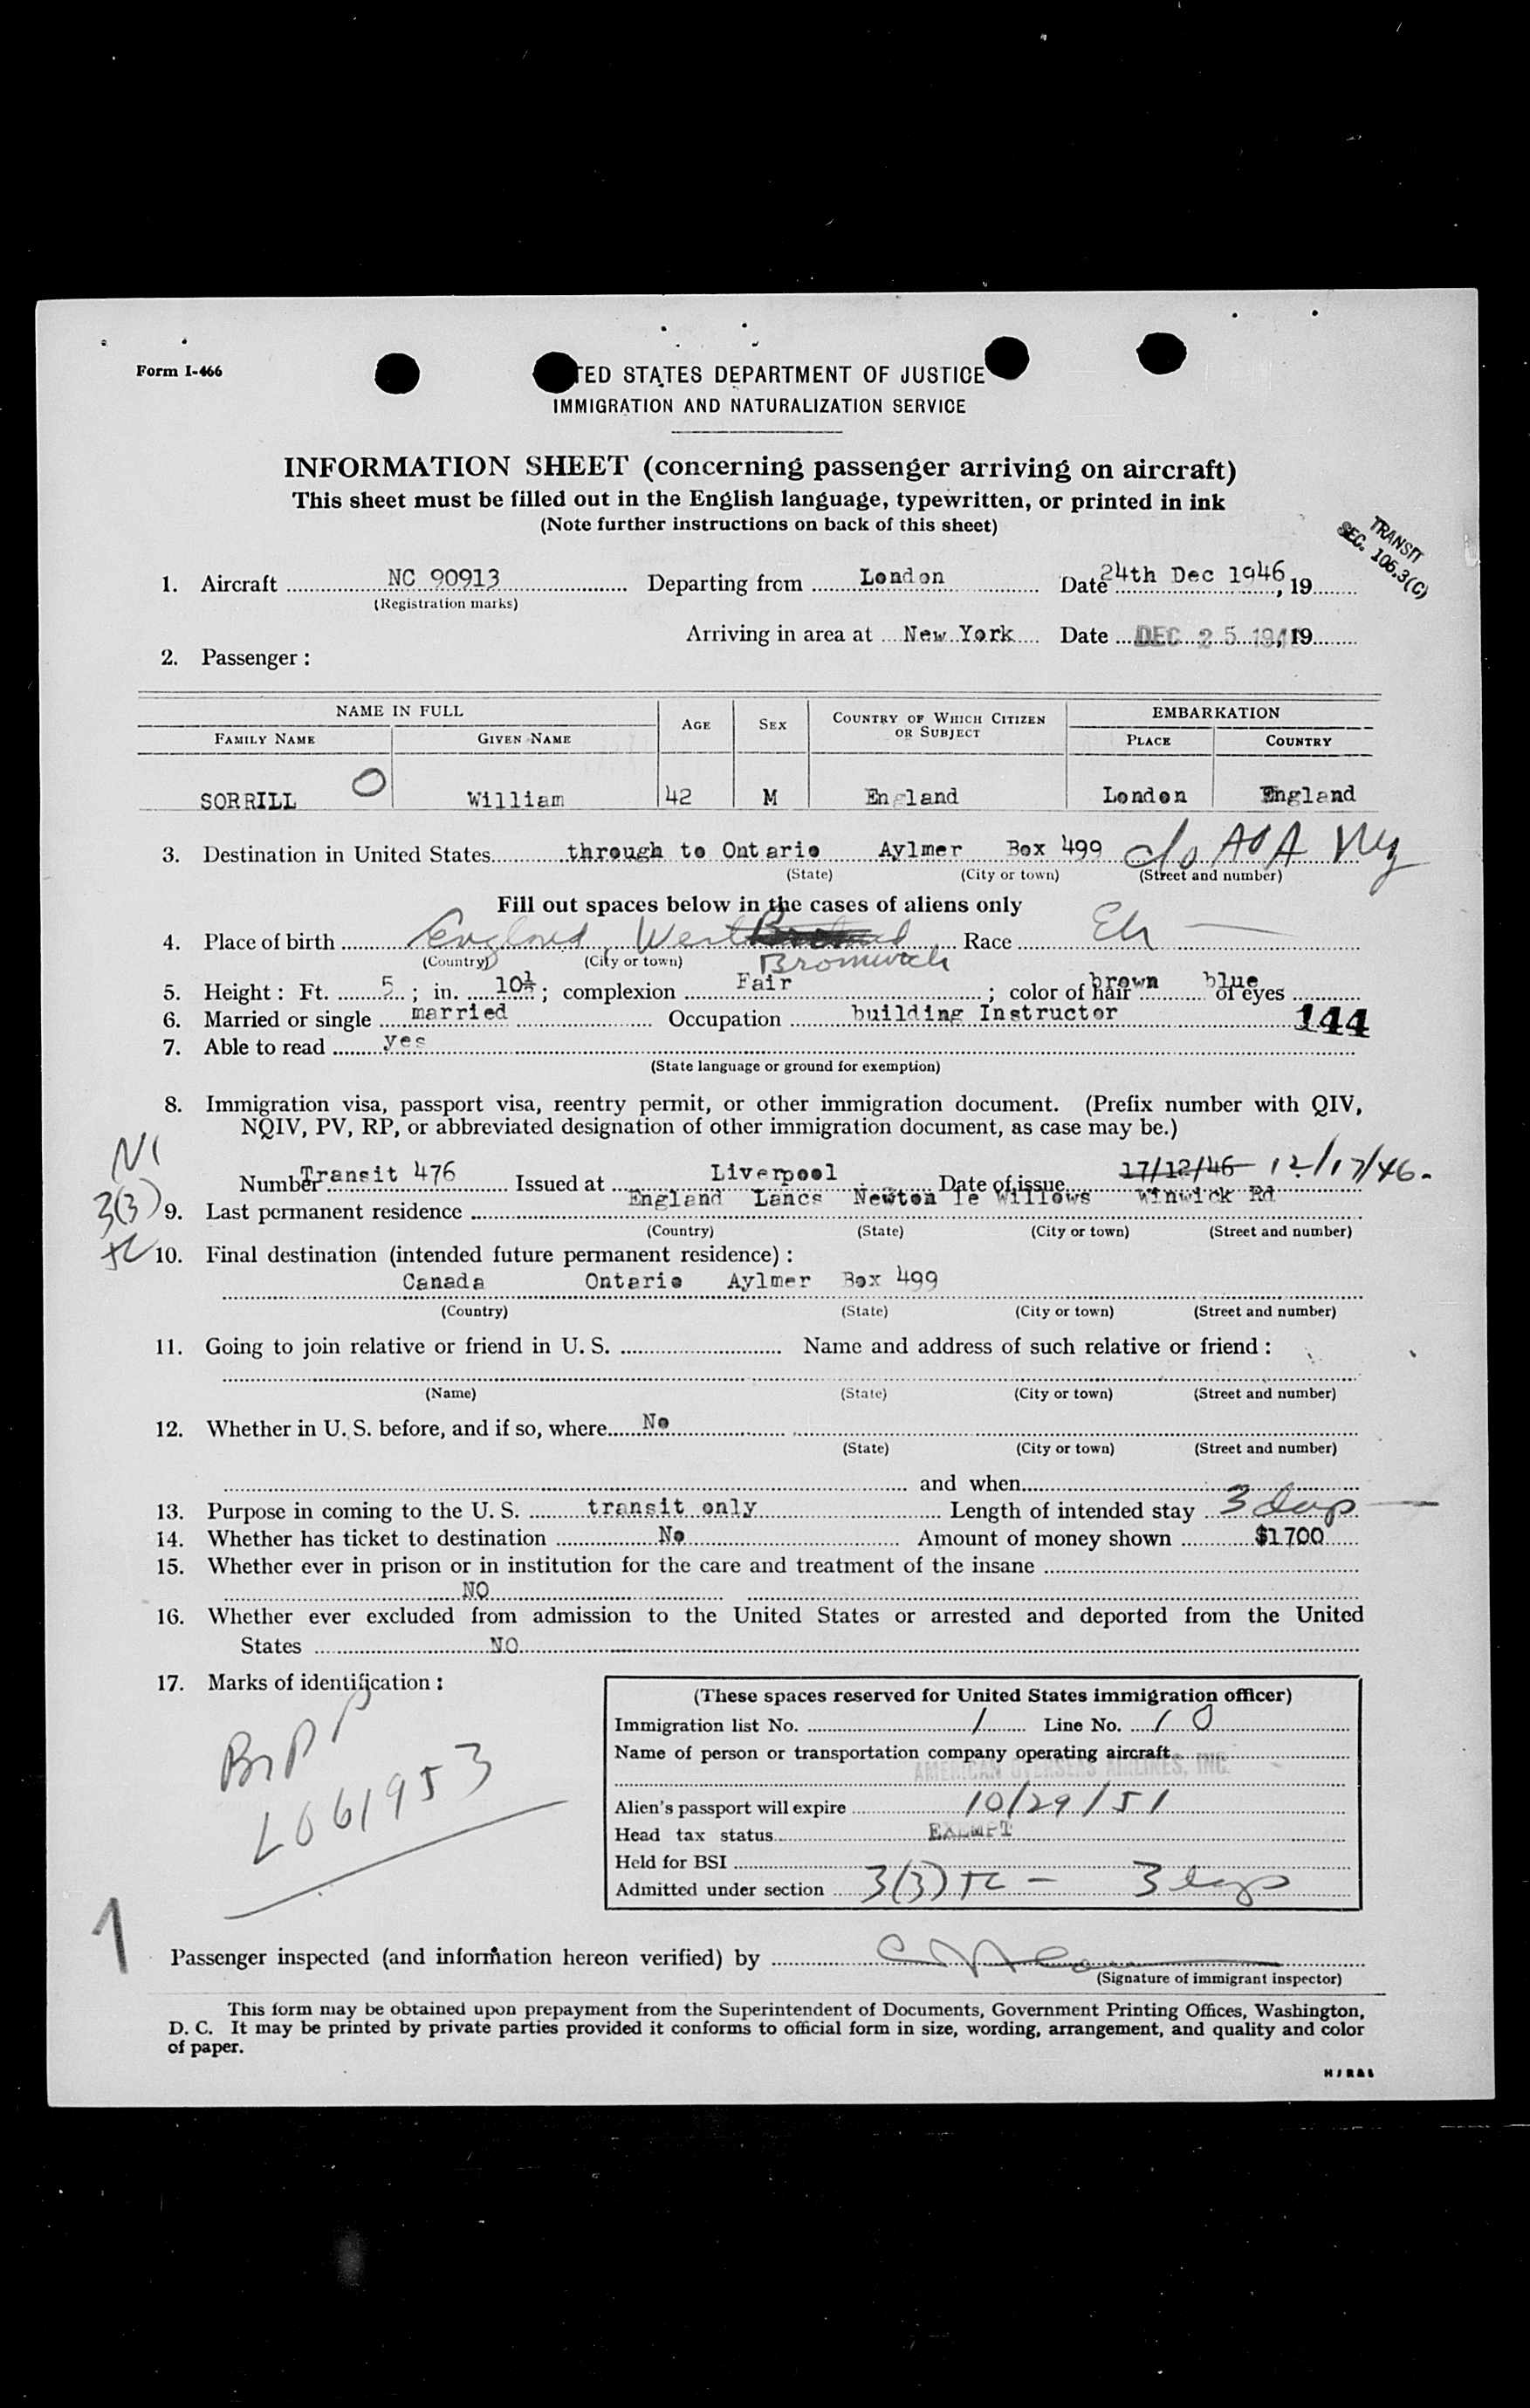 Form I-466
TED STATES DEPARTMENT OF JUSTICE
IMMIGRATION AND NATURALIZATION SERVICE
INFORMATION SHEET (concerning passenger arriving on aircraft)
This sheet must be filled out in the English language, typewritten, or printed in ink
(Note further instructions on back of this sheet)
TRANSIT
SEC. 106.3(C)
1. Aircraft NC 90913 Departing from London Date 24th Dec 1946, 19
(Registration marks)
Arriving in area at New York Date DEC 25 194, 19
2. Passenger:
NAME IN FULL AGE SEX COUNTRY OF WHICH CITIZEN OR SUBJECT EMBARKATION
FAMILY NAME GIVEN NAME PLACE COUNTRY
SORRILL O William 42 M England London England
3. Destination in United States through to Ontario Aylmer Box 499 c/o AOA NY
(State) (City or town) (Street and number)
Fill out spaces below in the cases of aliens only
4. Place of birth England West Race
(Country) (City or town) Bromwich
5. Height: Ft. 5; in. 10½; complexion Fair; color of hair brown of eyes blue
6. Married or single married Occupation building Instructor 144
7. Able to read yes
(State language or ground for exemption)
8. Immigration visa, passport visa, reentry permit, or other immigration document. (Prefix number with QIV,
NQIV, PV, RP, or abbreviated designation of other immigration document, as case may be.)
Number Transit 476 Issued at Liverpool Date of issue 17/12/46 12/17/46.
3(3) 9. Last permanent residence England Lancs Newton le Willows Winwick Rd
(Country) (State) (City or town) (Street and number)
10. Final destination (intended future permanent residence):
Canada Ontario Aylmer Box 499
(Country) (State) (City or town) (Street and number)
11. Going to join relative or friend in U. S. Name and address of such relative or friend:
(Name) (State) (City or town) (Street and number)
12. Whether in U. S. before, and if so, where No
(State) (City or town) (Street and number)
and when
13. Purpose in coming to the U. S. transit only Length of intended stay 3 days
14. Whether has ticket to destination No Amount of money shown $1700
15. Whether ever in prison or in institution for the care and treatment of the insane
NO
16. Whether ever excluded from admission to the United States or arrested and deported from the United
States NO
17. Marks of identification:
BrPP
L061953
(These spaces reserved for United States immigration officer)
Immigration list No. 1 Line No. 10
Name of person or transportation company operating aircraft
AMERICAN OVERSEAS AIRLINES, INC.
Alien's passport will expire 10/29/51
Head tax status EXEMPT
Held for BSI
Admitted under section 3(3) TC - 3 days
1
Passenger inspected (and information hereon verified) by
(Signature of immigrant inspector)
This form may be obtained upon prepayment from the Superintendent of Documents, Government Printing Offices, Washington,
D. C. It may be printed by private parties provided it conforms to official form in size, wording, arrangement, and quality and color
of paper.